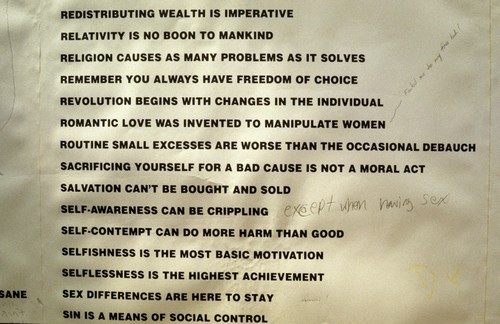 REDISTRIBUTING WEALTH IS IMPERATIVE
RELATIVITY IS NO BOON TO MANKIND
RELIGION CAUSES AS MANY PROBLEMS AS IT SOLVES
REMEMBER YOU ALWAYS HAVE FREEDOM OF CHOICE
REVOLUTION BEGINS WITH CHANGES IN THE INDIVIDUAL
ROMANTIC LOVE WAS INVENTED TO MANIPULATE WOMEN
ROUTINE SMALL EXCESSES ARE WORSE THAN THE OCCASIONAL DEBAUCH
SACRIFICING YOURSELF FOR A BAD CAUSE IS NOT A MORAL ACT
SALVATION CAN'T BE BOUGHT AND SOLD
SELF-AWARENESS CAN BE CRIPPLING except when having sex
SELF-CONTEMPT CAN DO MORE HARM THAN GOOD
SELFISHNESS IS THE MOST BASIC MOTIVATION
SELFLESSNESS IS THE HIGHEST ACHIEVEMENT
SANE SEX DIFFERENCES ARE HERE TO STAY
SIN IS A MEANS OF SOCIAL CONTROL